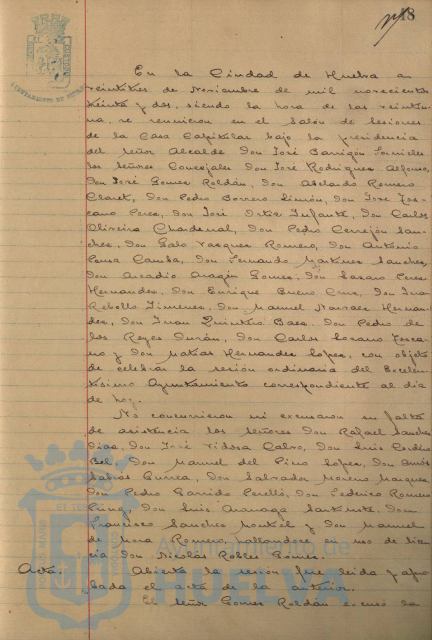 18
En la Ciudad de Huelva a
veintitres de Noviembre de mil novecientos
treinta y dos, siendo la hora de las veintiu-
na, se reunieron en el Salón de Sesiones
de la Casa Capitular bajo la presidencia
del Señor Alcalde Don José Barrigón Fornieles
los Señores Concejales Don José Rodriguez Alfonso,
Don José Gomez Roldán, Don Abelardo Romero
Claret, Don Pedro Borrero Limón, Don José Tos-
cano Perez, Don José Ortiz Infante, Don Carlos
Oliveira Chardenal, Don Pedro Cerrejón San-
chez, Don Galo Vazquez Romero, Don Antonio
Pousa Camba, Don Fernando Martinez Sanchez,
Don Arcadio Aragón Gomez, Don Lazaro Perez
Hernandez, Don Enrique Bueno Cruz, Don Juan
Rebollo Jimenez, Don Manuel Narvaez Hernan-
dez, Don Juan Quintero Baez, Don Pedro de
los Reyes Durán, Don Carlos Lozano Tosca-
no y Don Matias Hernandez Lopez, con objeto
de celebrar la sesión ordinaria del Excelen-
tisimo Ayuntamiento correspondiente al dia
de hoy.
No concurrieron ni excusaron su falta
de asistencia los Señores Don Rafael Sanchez
Diaz, Don José Vidosa Calvo, Don Luis Cordero
Bel, Don Manuel del Pino Lopez, Don Amós
Sabras Gurrea, Don Salvador Moreno Marquez,
Don Pedro Garrido Perelló, Don Federico Romero
Don Luis Don
Francisco Sanchez Don Manuel
de Mora Romero, hallandose en uso de licen-
cia Don Nicolás Robles Gomez.
Acta. Abierta la sesión fue leida y apro-
bada el acta de la anterior.
El Señor Gomez Roldán excusó la
Ayuntamiento de
HUELVA